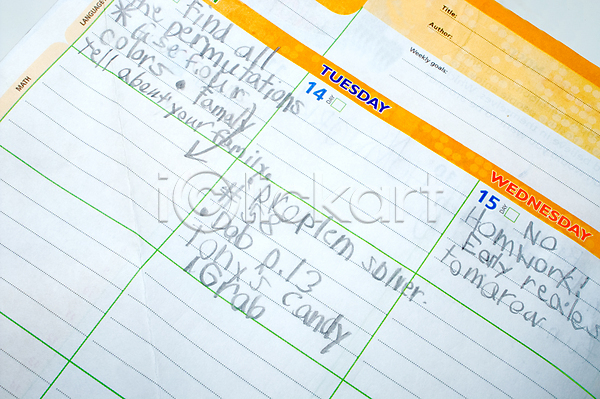 Title:
Author:
Weekly goals:
LANGUAGE
MATH
TUESDAY
14 DAY
WEDNESDAY
15 DAY
Find all
the permutations
* use four
colors • family
Tell about your family.
* problem solver.
Dab p.13
Tony's Candy
Grab
No
Homwork!
Early
tomarow
iclickart